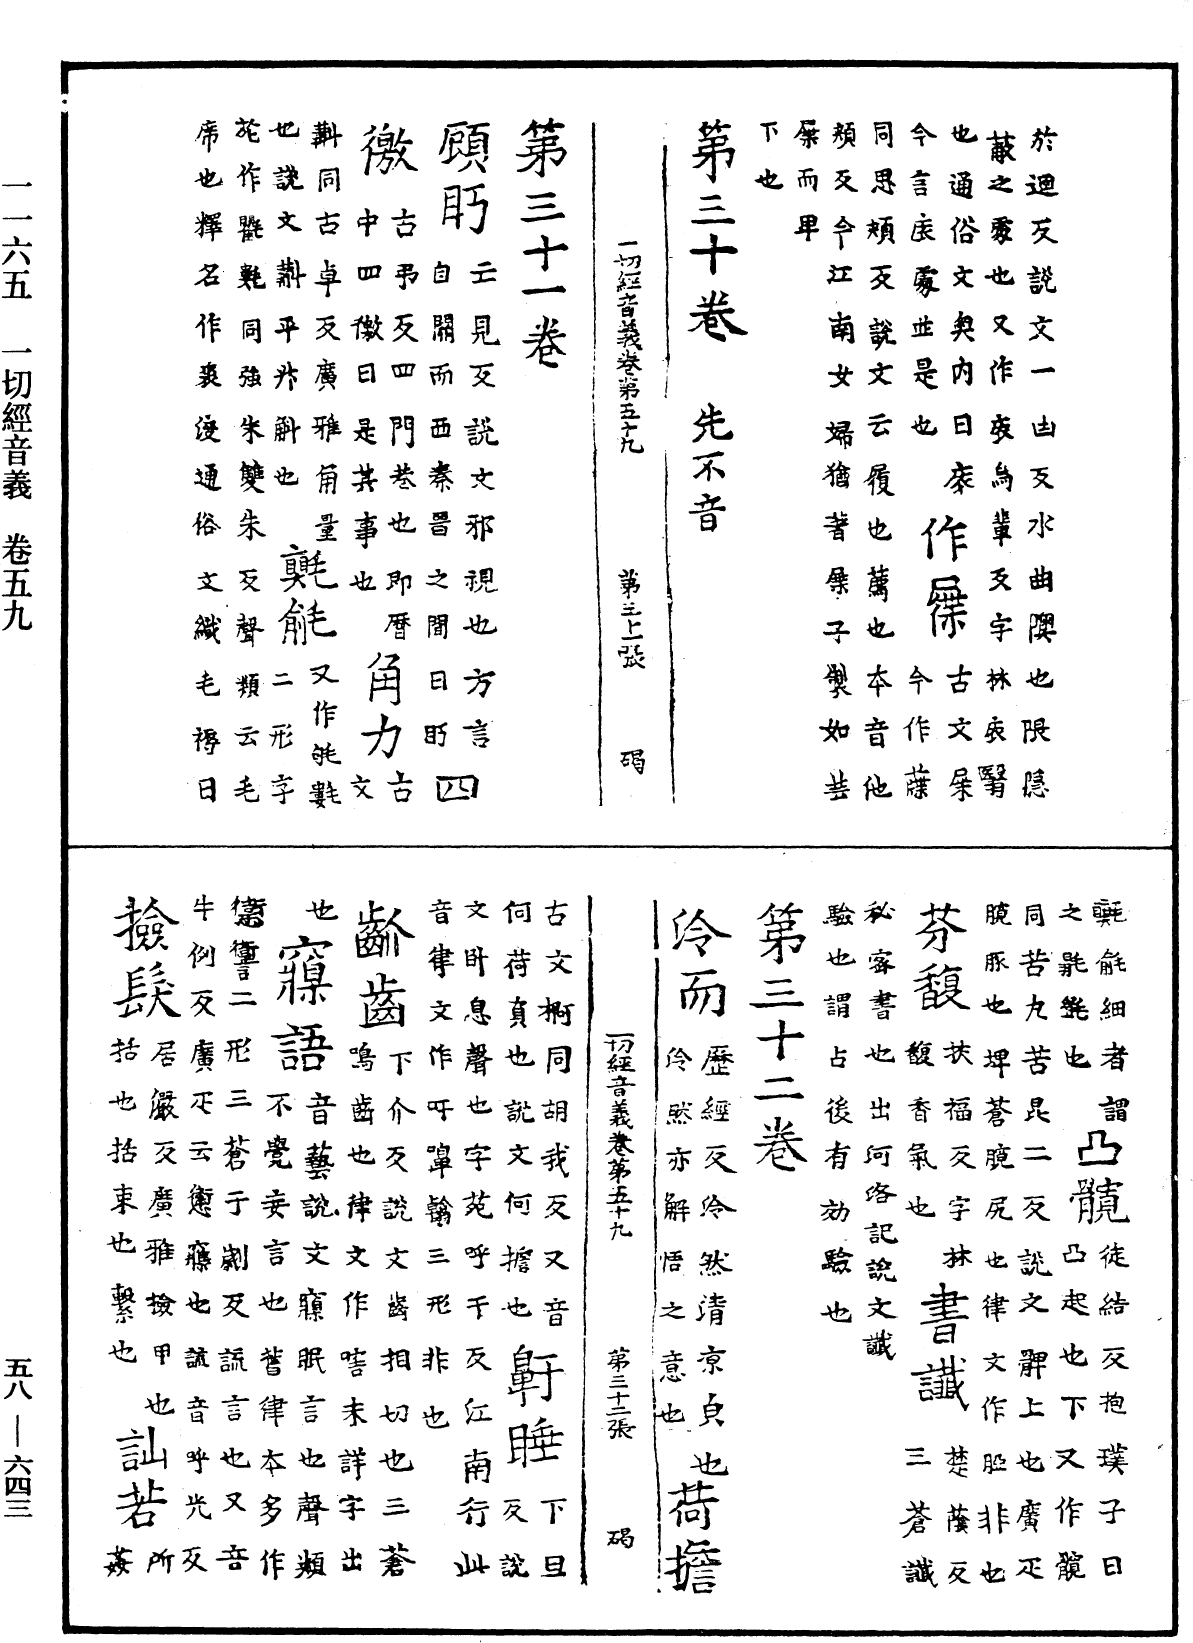 一一六五 一切經音義 卷五九
五八—六四三
於迴反說文一凷反水曲隩也隈隱
蔽之處也又作㡾烏輩反字林㡾翳
也通俗文奧內曰㡾
今言㡾處並是也
作屧
古文屟
今作䕈
同思頰反說文云履也薦也本音他
頰反今江南女婦猶著屟子製如芸
屟而卑
下也
第三十卷 先不音
一切經音義卷第五十九 第三十一張 碣
第三十一卷
顧眄
亡見反說文邪視也方言
自關而西秦晉之間曰眄
四
徼
古弔反四門巷也即曆
中四徼曰是其事也
角力
古
文
斠同古卓反廣雅角量
也說文斠平斗斛也
氍毹
又作㲣㲣
二形字
苑作氍㲣同強朱雙朱反聲類云毛
席也釋名作裘溲通俗文織毛褥曰
氍毹細者謂
之㲪㲪也
凸髖
徒結反抱璞子曰
凸起也下又作髖
同苦丸苦昆二反說文髀上也廣疋
臗豚也埤蒼臗尻也律文作䏶非也
芬馥
扶福反字林
馥香氣也
書讖
楚蔭反
三蒼讖
秘密書也出河洛記說文讖
驗也謂占後有効驗也
第三十二卷
泠而
歷經反泠然清涼皃也
泠然亦解悟之意也
荷擔
古文㧁同胡我反又音
何荷負也說文何擔也
鼾睡
下旦
反說
文臥息聲也字苑呼干反江南行此
音律文作吁嘽㪋三形非也
齘齒
下介反說文齒相切也三蒼
鳴齒也律文作㗫未詳字出
也
寱語
音藝說文寱眠言也聲類
不覺妄言也舊律本多作
㦣讆二形三蒼于劌反謊言也又音
牛例反廣疋云㦣寱也謊音呼光反
撿髮
居嚴反廣雅撿甲也
括也括束也繫也
訕若
所
姦
一切經音義卷第五十九 第三十二張 碣